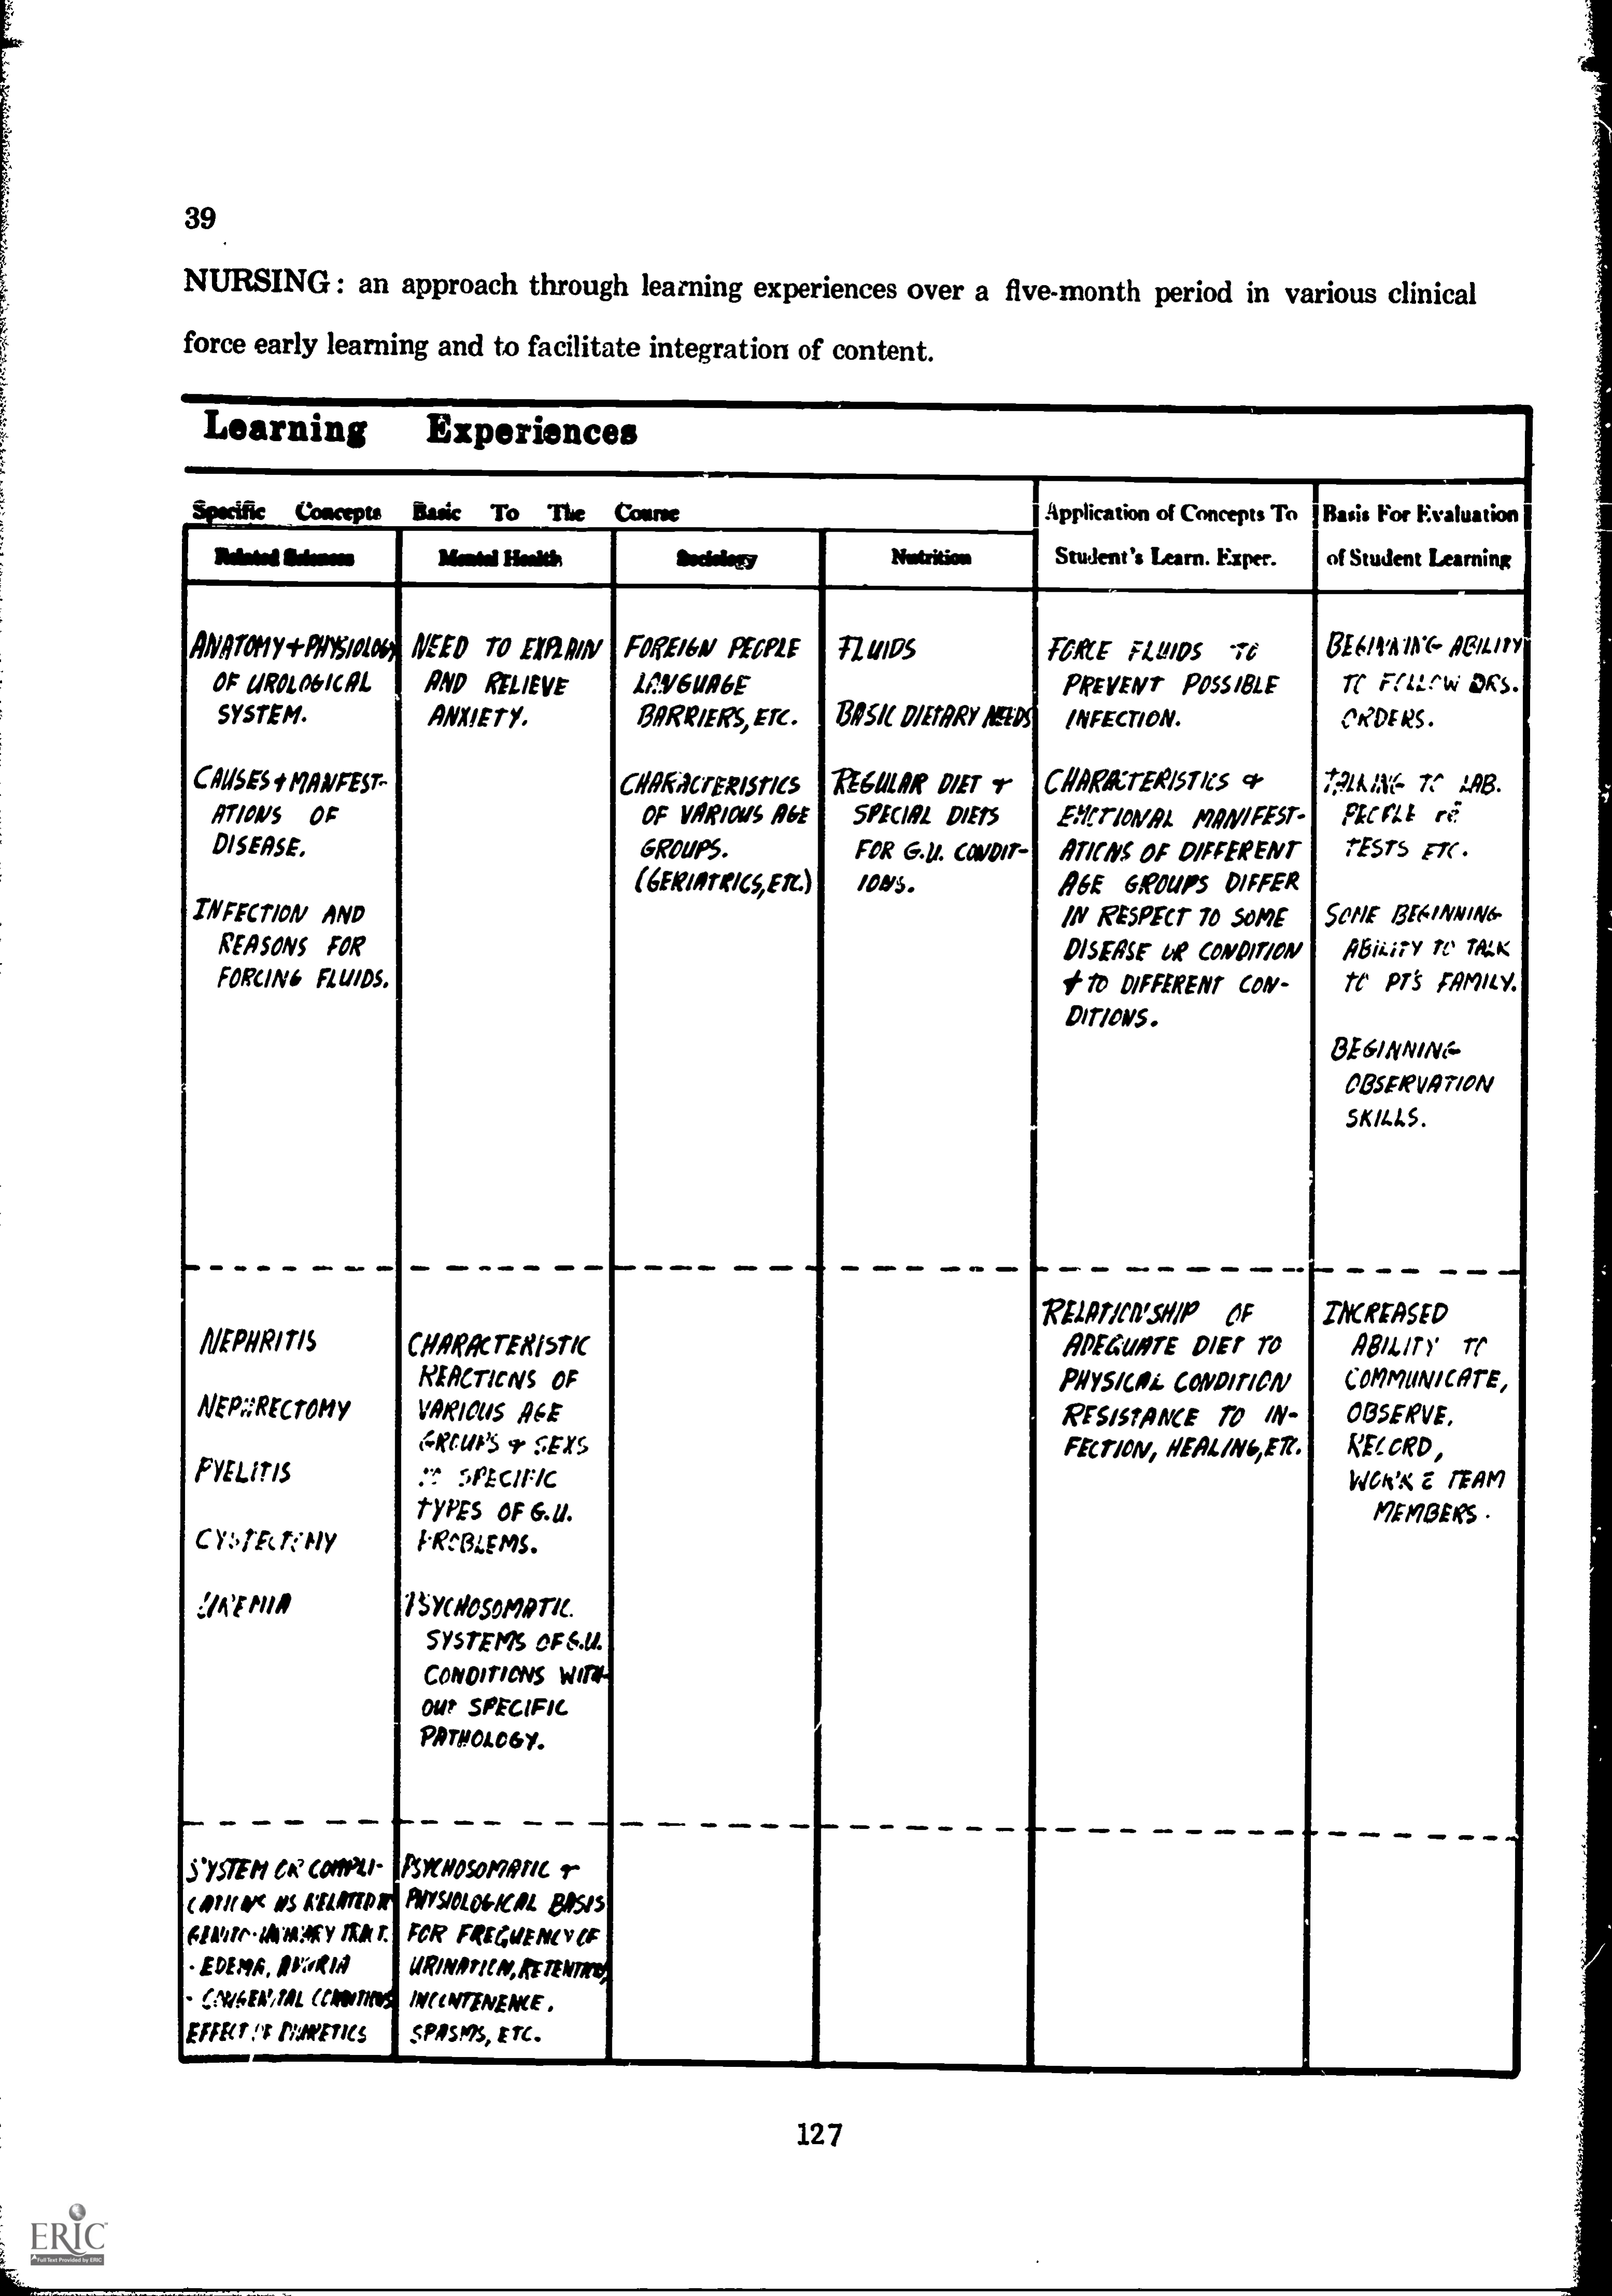 39
NURSING: an approach through learning experiences over a five-month period in various clinical
force early learning and to facilitate integration of content.
Learning Experiences
Specific Concepts Basic To The Course
Application of Concepts To
Student's Learn. Exper.
Basis For Evaluation
of Student Learning
Related Sciences
Mental Health
Sociology
Nutrition
ANATOMY + PHYSIOLOGY
OF UROLOGICAL
SYSTEM.
CAUSES + MANFEST-
ATIONS OF
DISEASE.
INFECTION AND
REASONS FOR
FORCING FLUIDS.
NEED TO EXPLAIN
AND RELIEVE
ANXIETY.
FOREIGN PEOPLE
LANGUAGE
BARRIERS, ETC.
CHARACTERISTICS
OF VARIOUS AGE
GROUPS.
(GERIATRICS, ETC.)
FLUIDS
BASIC DIETARY NEEDS
REGULAR DIET +
SPECIAL DIETS
FOR G.U. CONDIT-
IONS.
FORCE FLUIDS TO
PREVENT POSSIBLE
INFECTION.
CHARACTERISTICS +
EMOTIONAL MANIFEST-
ATIONS OF DIFFERENT
AGE GROUPS DIFFER
IN RESPECT TO SOME
DISEASE OR CONDITION
+ TO DIFFERENT CON-
DITIONS.
BEGINNING ABILITY
TO FOLLOW DRS.
ORDERS.
TALKING TO LAB.
PEOPLE re
TESTS ETC.
SOME BEGINNING
ABILITY TO TALK
TO PT'S FAMILY.
BEGINNING
OBSERVATION
SKILLS.
NEPHRITIS
NEPHRECTOMY
PYELITIS
CYSTECTOMY
UREMIA
CHARACTERISTIC
REACTIONS OF
VARIOUS AGE
GROUPS + SEXS
TO SPECIFIC
TYPES OF G.U.
PROBLEMS.
PSYCHOSOMATIC
SYSTEMS OF G.U.
CONDITIONS WITH-
OUT SPECIFIC
PATHOLOGY.
RELATIONSHIP OF
ADEQUATE DIET TO
PHYSICAL CONDITION
RESISTANCE TO IN-
FECTION, HEALING, ETC.
INCREASED
ABILITY TO
COMMUNICATE,
OBSERVE,
RECORD,
WORK c TEAM
MEMBERS.
SYSTEM OR COMPLI-
CATIONS AS RELATED TO
GENITO-URINARY TRACT.
- EDEMA, ANURIA
- CONGENITAL CONDITIONS
EFFECT OF DIURETICS
PSYCHOSOMATIC +
PHYSIOLOGICAL BASIS
FOR FREQUENCY OF
URINATION, RETENTION,
INCONTENENCE.
SPASMS, ETC.
127
ERIC
Full Text Provided by ERIC